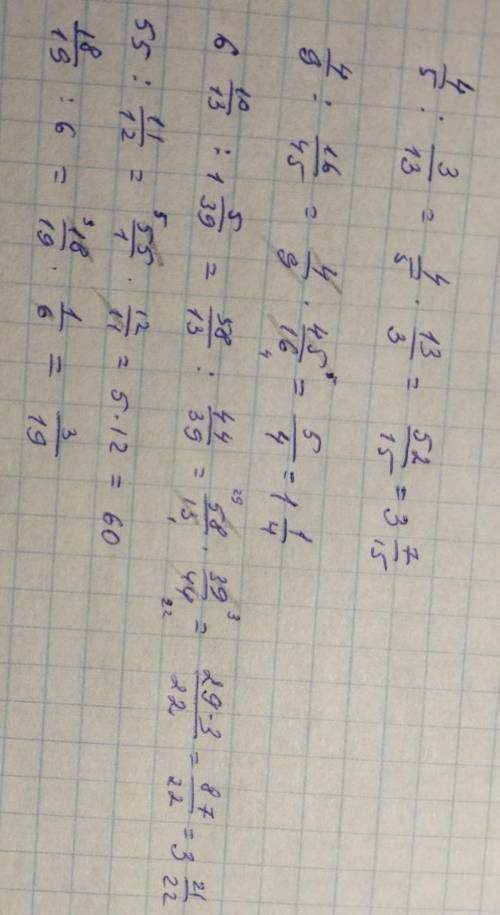 4/5 : 3/13 = 4/5 · 13/3 = 52/15 = 3 7/15
4/9 : 16/45 = 4/9 · 45/16 = 5/4 = 1 1/4
6 10/13 : 1 5/39 = 58/13 : 44/39 = 58/13 · 39/44 = 29·3/22 = 87/22 = 3 21/22
55 : 11/12 = 55/1 · 12/11 = 5·12 = 60
18/19 : 6 = 18/19 · 1/6 = 3/19